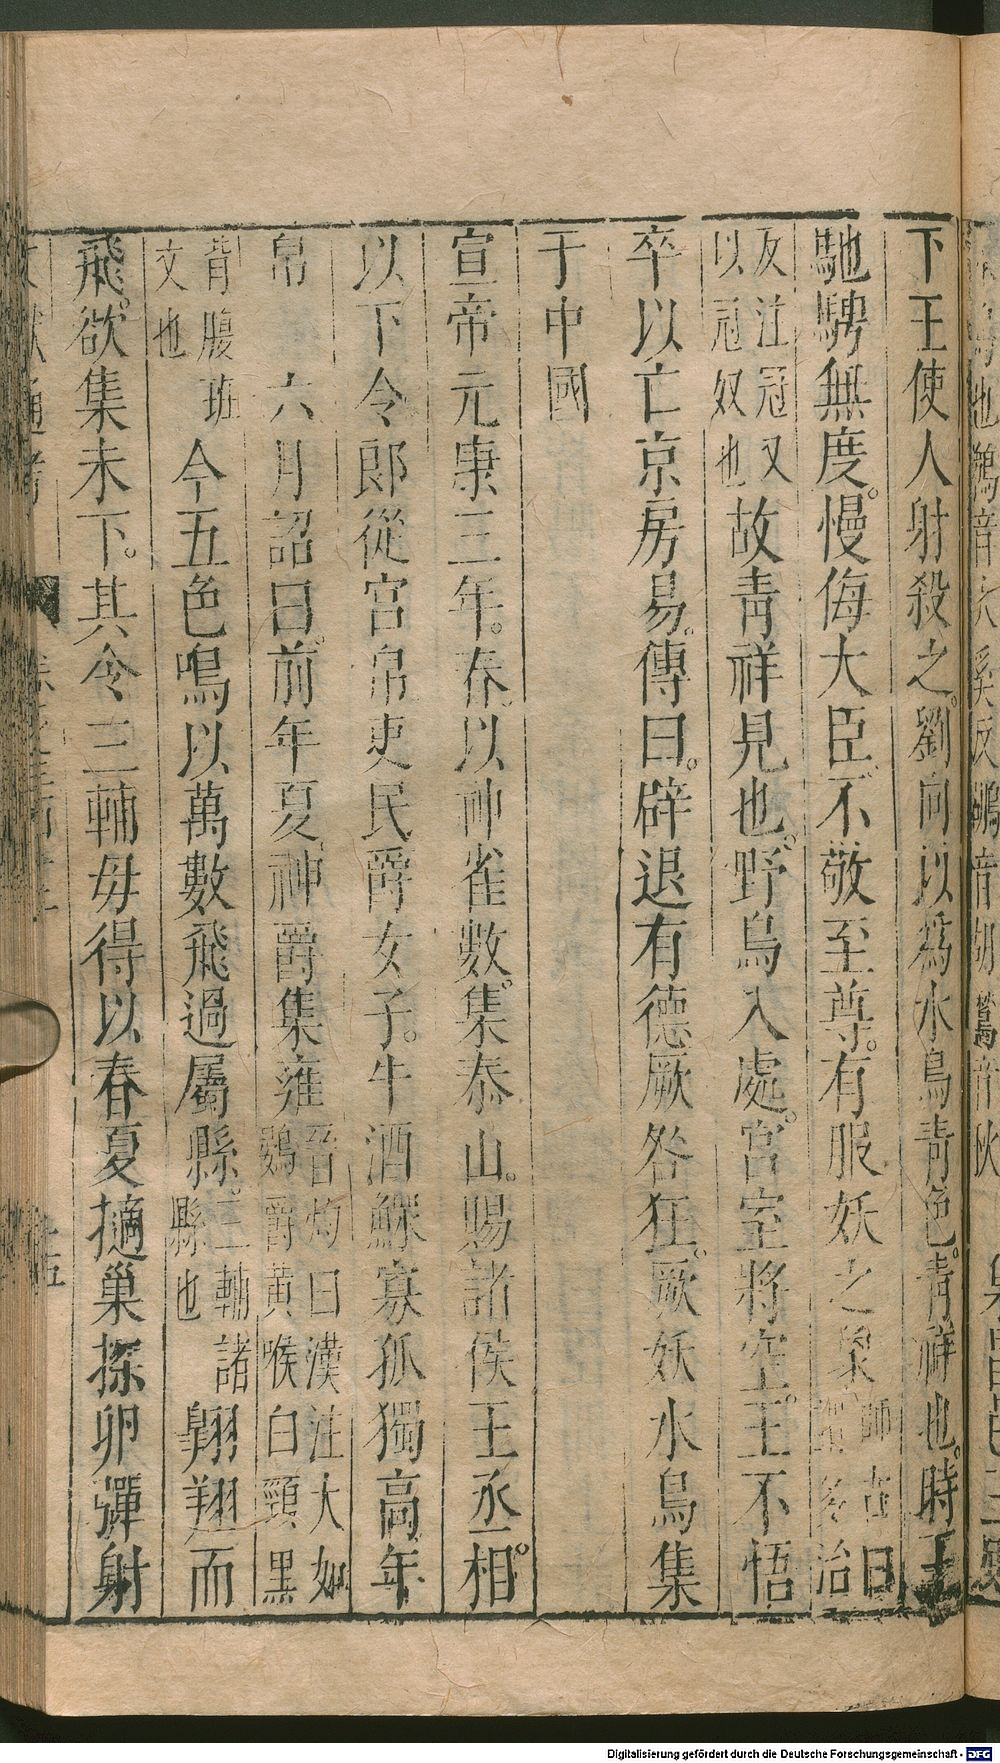 下王使人射殺之。劉向以爲水鳥青色。青祥也。時王
馳騁無度。慢侮大臣。不敬至尊。有服妖之象 師古曰 多治
反注冠又 以冠奴也 故青祥見也。野鳥入處。宮室將空。王不悟
卒以亡京房易。傳曰。辟退有德厥咎狂。厥妖水鳥集
于中國
宣帝元康三年。春。以神雀數。集泰山。賜諸侯王丞相。
以下令郎從官帛吏民爵女子。牛酒鰥寡孤獨高年
帛 六月詔曰。前年夏神爵集雍 晉灼曰漢注大如 鷃爵黃喉白頸黑
背腹班 文也 今五色鳴以萬數飛過屬縣。 三輔諸 縣也 翱翔而
飛。欲集未下。其令三輔毋得以春夏擿巢探卵彈射
Digitalisierung gefördert durch die Deutsche Forschungsgemeinschaft - DFG